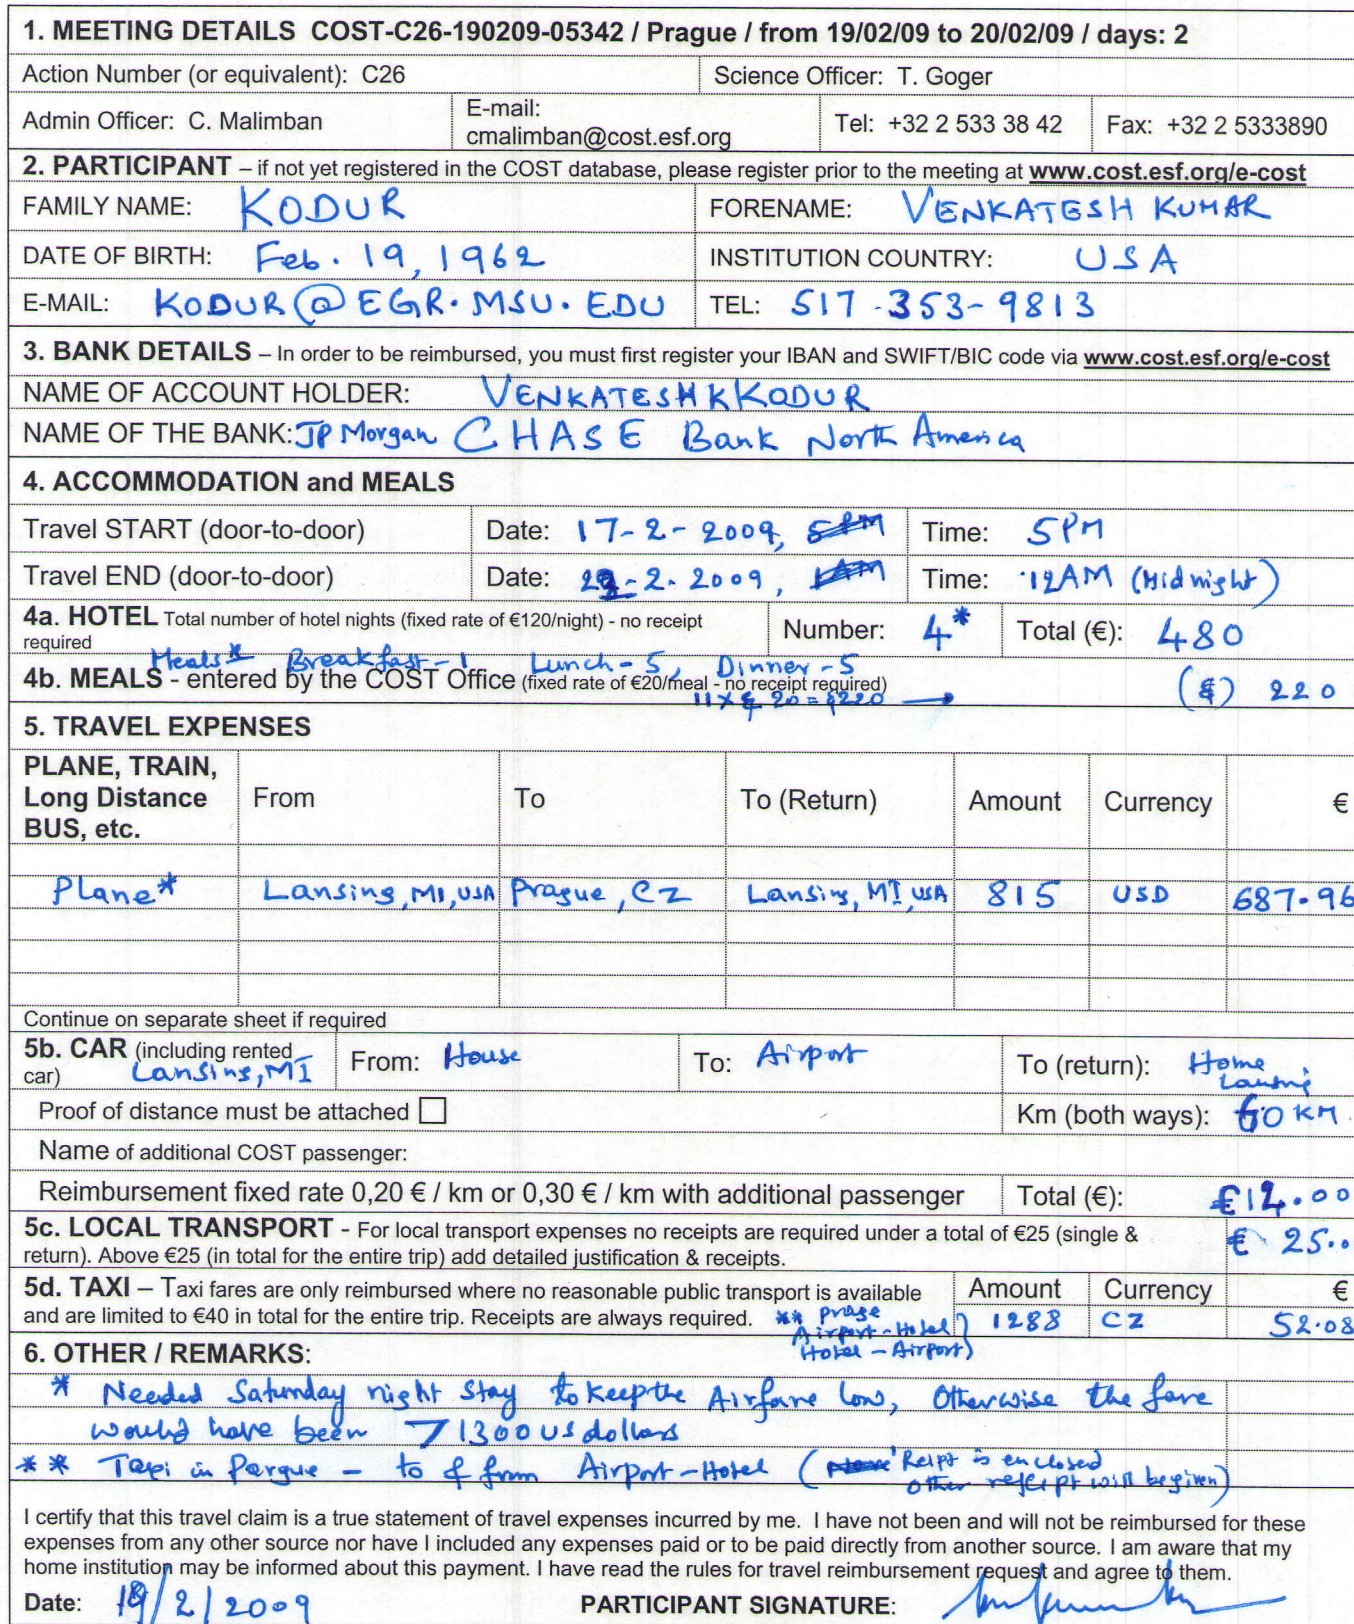 1. MEETING DETAILS COST-C26-190209-05342 / Prague / from 19/02/09 to 20/02/09 / days: 2
Action Number (or equivalent): C26 Science Officer: T. Goger
Admin Officer: C. Malimban E-mail: cmalimban@cost.esf.org Tel: +32 2 533 38 42 Fax: +32 2 5333890
2. PARTICIPANT – if not yet registered in the COST database, please register prior to the meeting at www.cost.esf.org/e-cost
FAMILY NAME: KODUR FORENAME: VENKATESH KUMAR
DATE OF BIRTH: Feb. 19, 1962 INSTITUTION COUNTRY: USA
E-MAIL: KODUR@EGR.MSU.EDU TEL: 517-353-9813
3. BANK DETAILS – In order to be reimbursed, you must first register your IBAN and SWIFT/BIC code via www.cost.esf.org/e-cost
NAME OF ACCOUNT HOLDER: VENKATESH K KODUR
NAME OF THE BANK: JP Morgan CHASE Bank North America
4. ACCOMMODATION and MEALS
Travel START (door-to-door) Date: 17-2-2009, 5PM Time: 5PM
Travel END (door-to-door) Date: -2-2009, 1AM Time: 12AM (Midnight)
4a. HOTEL Total number of hotel nights (fixed rate of €120/night) - no receipt required Number: 4* Total (€): 480
Meals* Breakfast-1 Lunch-5, Dinner-5
4b. MEALS - entered by the COST Office (fixed rate of €20/meal - no receipt required) (€) 220
11 x € 20 = €220
5. TRAVEL EXPENSES
PLANE, TRAIN, Long Distance BUS, etc. From To To (Return) Amount Currency €
Plane* Lansing, MI, USA Prague, CZ Lansing, MI, USA 815 USD 687.96
Continue on separate sheet if required
5b. CAR (including rented car) Lansing, MI From: House To: Airport To (return): Home Lansing
Proof of distance must be attached Km (both ways): 60 KM
Name of additional COST passenger:
Reimbursement fixed rate 0,20 € / km or 0,30 € / km with additional passenger Total (€): €12.00
5c. LOCAL TRANSPORT - For local transport expenses no receipts are required under a total of €25 (single & € 25..
return). Above €25 (in total for the entire trip) add detailed justification & receipts.
5d. TAXI – Taxi fares are only reimbursed where no reasonable public transport is available Amount Currency €
and are limited to €40 in total for the entire trip. Receipts are always required. ** Prage 1288 CZ 52.08
Airport-Hotel
Hotel-Airport)
6. OTHER / REMARKS:
* Needed Saturday night stay to keep the Airfare low, Otherwise the fare
would have been > 1300 US dollars
** Taxi in Pargue - to & from Airport-Hotel ( Reipt is enclosed
other receipt will be given)
I certify that this travel claim is a true statement of travel expenses incurred by me. I have not been and will not be reimbursed for these
expenses from any other source nor have I included any expenses paid or to be paid directly from another source. I am aware that my
home institution may be informed about this payment. I have read the rules for travel reimbursement request and agree to them.
Date: 19/2/2009 PARTICIPANT SIGNATURE: